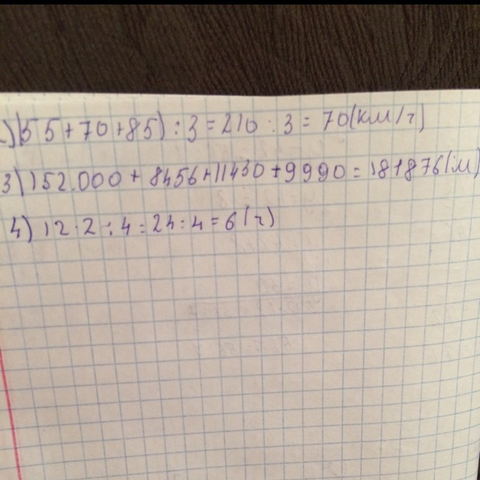 2) (55+70+85):3=210:3=70(км/ч)
3) 152.000+8456+11430+9990=181876(м)
4) 12·2:4=24:4=6(ч)